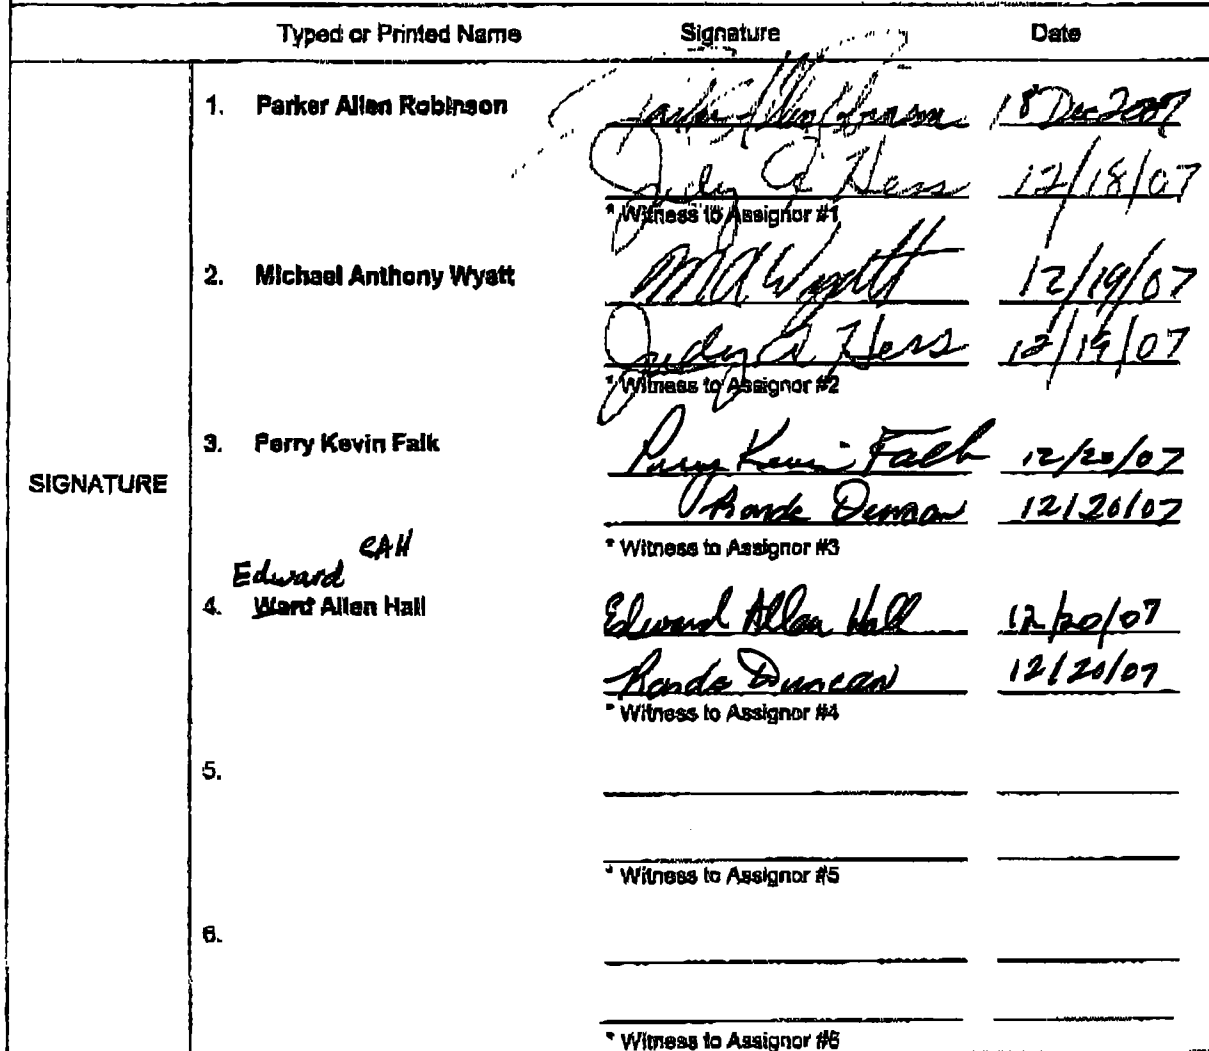 Typed or Printed Name Signature Date
1. Parker Allen Robinson Parker Allen Robinson 18 Dec 2007
Judy A Hess 12/18/07
* Witness to Assignor #1
2. Michael Anthony Wyatt MA Wyatt 12/19/07
Judy A Hess 12/19/07
* Witness to Assignor #2
3. Perry Kevin Falk Perry Kevin Falk 12/20/07
SIGNATURE
Ronda Duncan 12/20/07
* Witness to Assignor #3
EAH
Edward
4. Ward Allen Hall Edward Allan Hall 12/20/07
Ronda Duncan 12/20/07
* Witness to Assignor #4
5.
* Witness to Assignor #5
6.
* Witness to Assignor #6